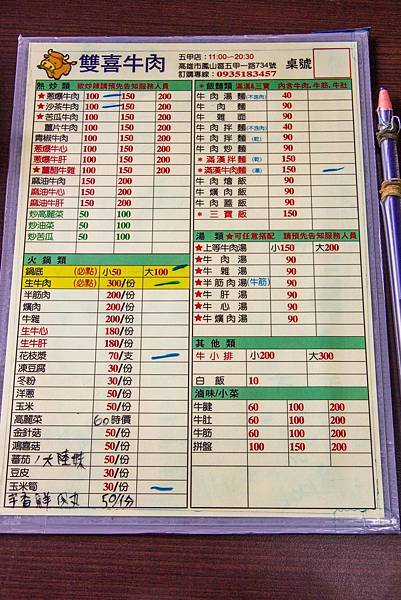 雙喜牛肉
五甲店：11:00—20:30
高雄市鳳山區五甲一路734號
訂購專線：0935183457
桌號
熱炒類 欲炒辣請預先告知服務人員
★蔥爆牛肉 100 150 200
★沙茶牛肉 100 150 200
★苦瓜牛肉 100 150 200
薑片牛肉 100 150 200
青椒牛肉 100 150 200
蔥爆牛心 100 150 200
蔥爆牛肝 100 150 200
★薑醋牛雜 100 150 200
麻油牛肉 150 200
麻油牛心 150 200
麻油牛肝 150 200
炒高麗菜 50 100
炒油菜 50 100
炒苦瓜 50 100
火鍋類
鍋底 (必點) 小50 大100
生牛肉 (必點) 300/份
半筋肉 200/份
爌肉 200/份
牛雜 200/份
生牛心 180/份
生牛肝 180/份
花枝漿 70/支
凍豆腐 30/份
冬粉 30/份
洋蔥 50/份
玉米 50/份
高麗菜 60 時價
金針菇 50/份
鴻喜菇 50/份
蕃茄/大陸妹 50/份
豆皮 30/份
玉米筍 30/份
芋香鮮肉丸 50/份
*飯麵類 滿漢&三寶 內含牛肉.牛筋.牛肚
牛肉湯麵(不含肉) 40
牛肉麵 90
牛雜麵 90
牛肉拌麵(不含肉) 40
牛肉拌麵(乾) 90
牛肉炒麵 90
*滿漢拌麵(乾) 150
*滿漢牛肉麵(湯) 150
牛肉燴飯 90
牛爌肉飯 90
牛肉蓋飯 90
*三寶飯 150
湯類 ★可任意搭配 請預先告知服務人員
★上等牛肉湯 小150 大200
★牛肉湯 90
★牛雜湯 90
★半筋肉湯(牛筋) 90
★牛肝湯 90
★牛心湯 90
★牛爌肉湯 90
其他類
牛小排 小200 大300
白飯 10
滷味/小菜
牛腱 60 100 200
牛肚 60 100 200
牛筋 60 100 200
拼盤 100 150 200